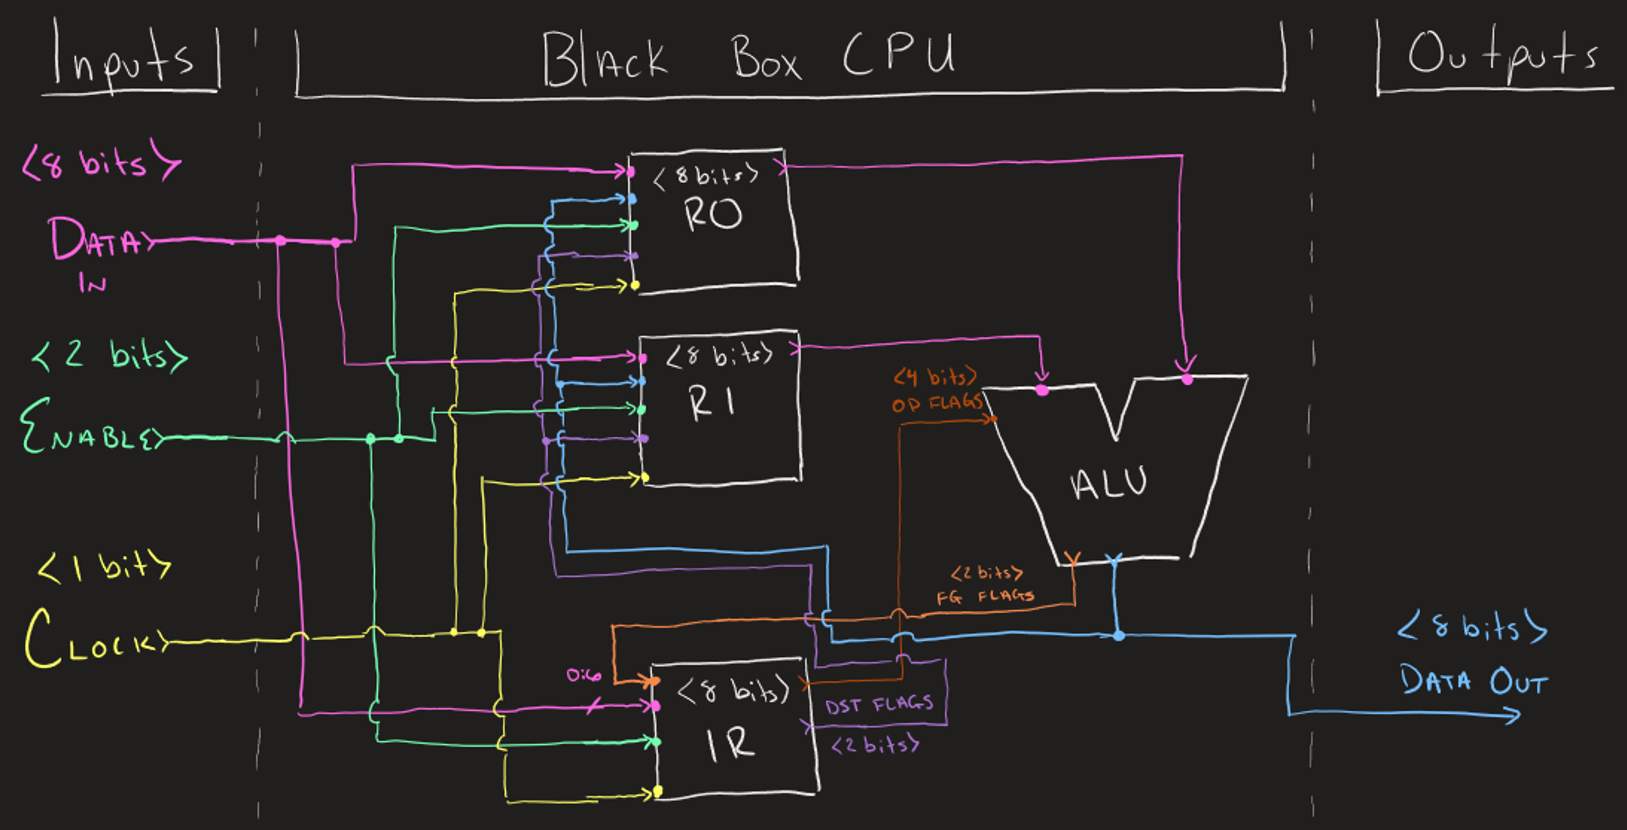 Inputs
Black Box CPU
Outputs
<8 bits>
DATA
IN
<2 bits>
ENABLE
<1 bit>
CLOCK
<8 bits>
R0
<8 bits>
R1
<4 bits>
OP FLAGS
ALU
<2 bits>
FG FLAGS
<8 bits>
IR
DST FLAGS
<2 bits>
<8 bits>
DATA OUT